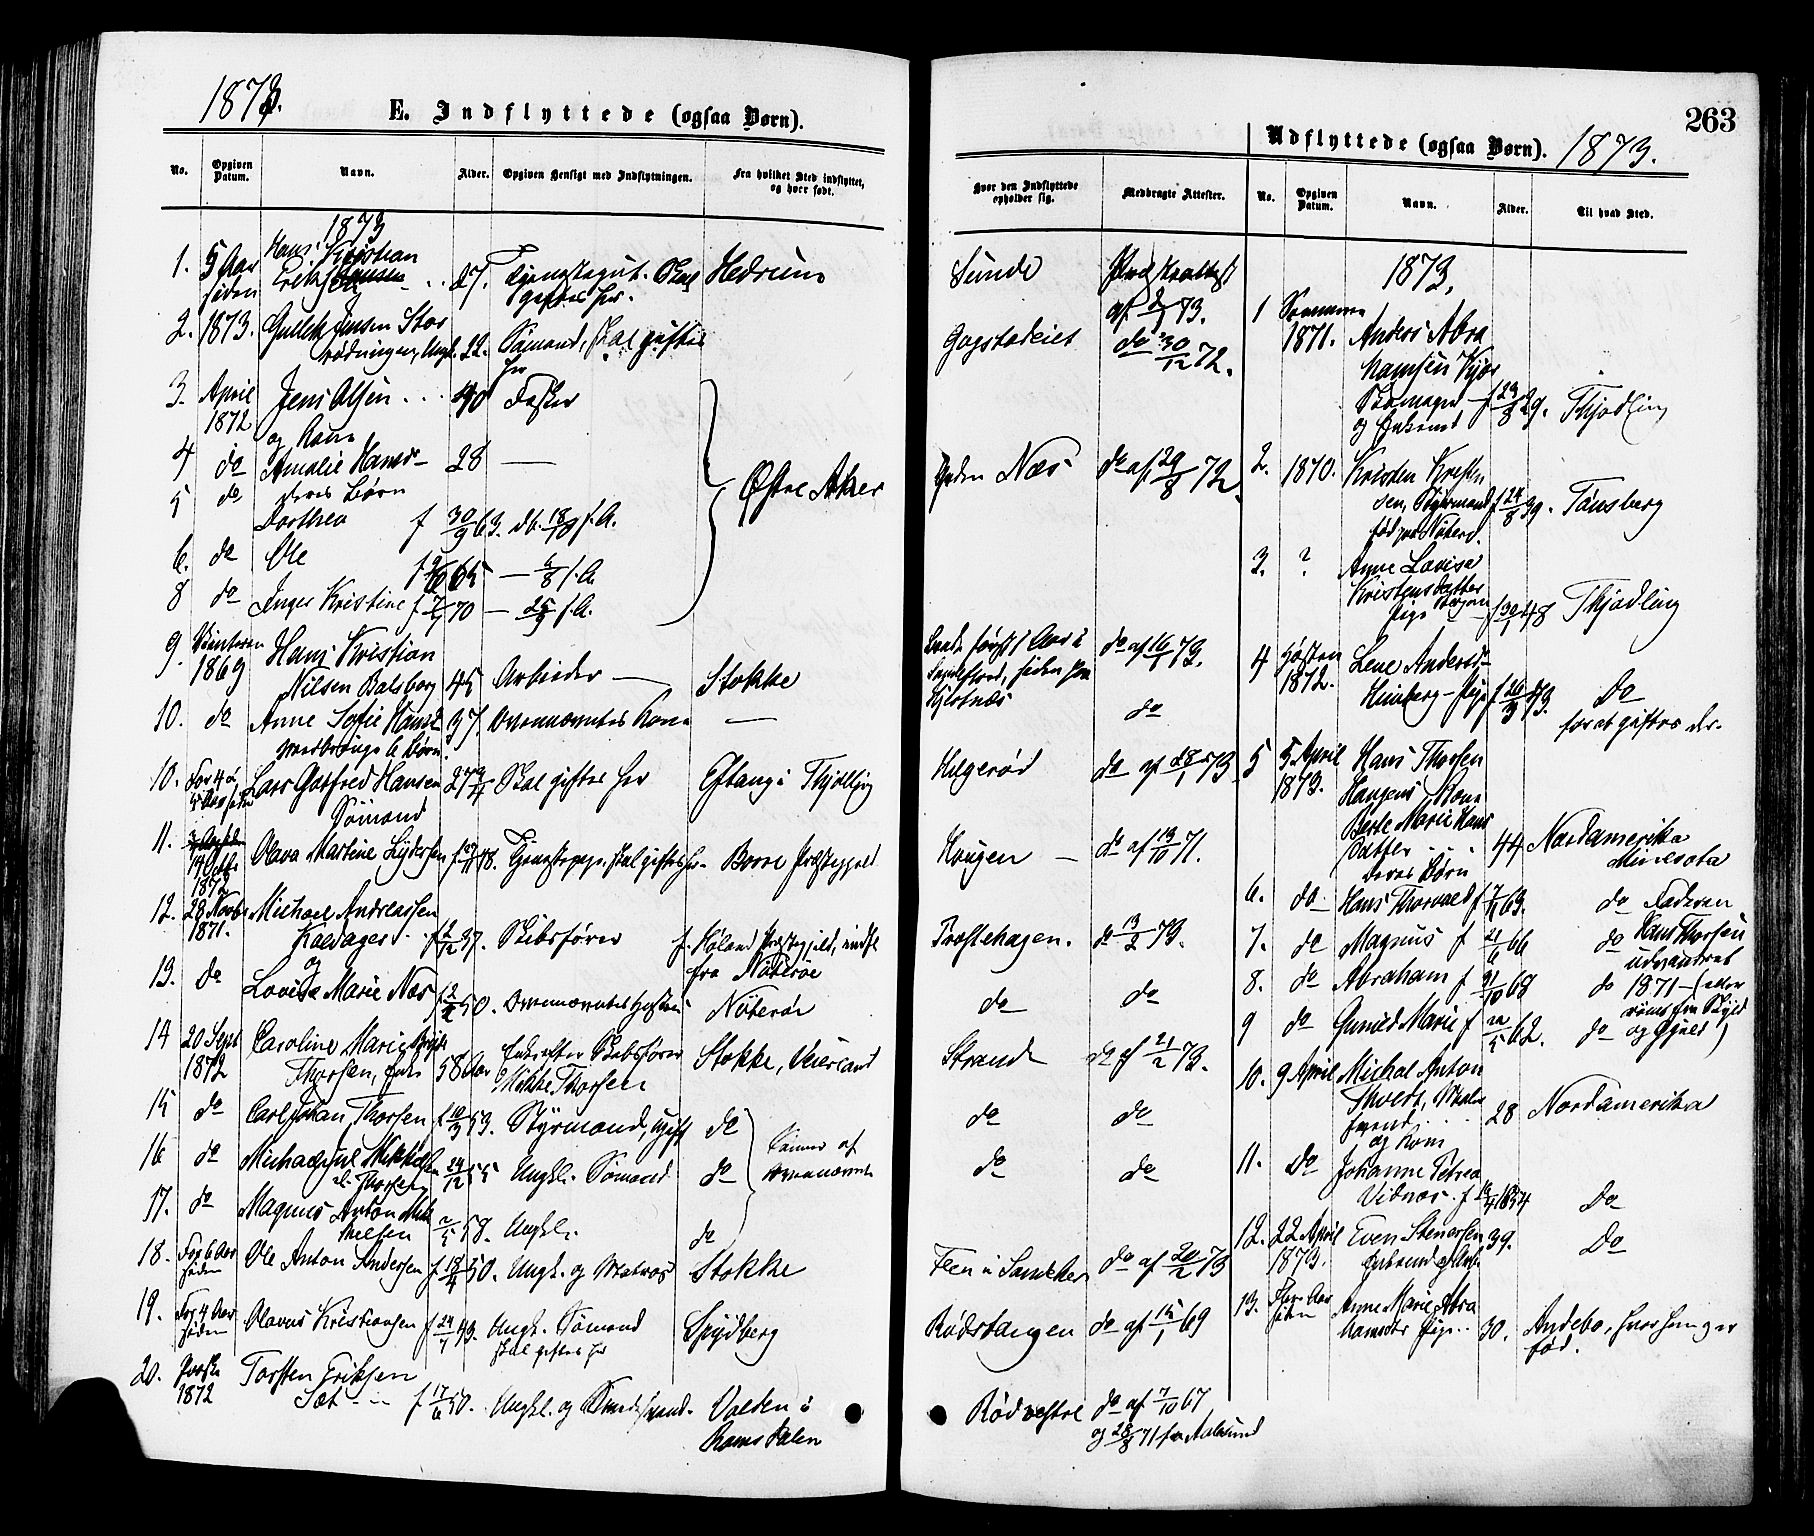 1873.
E. Indflyttede (ogsaa Børn).
No. Opgiven Datum. Navn. Alder. Opgiven Hensigt med Indflytningen. Fra hvilket Sted indflyttet, og hvor født.
1873
1. 5 Aar siden Hans Kristian 27. Tjenestegut. Skal giftes her. Hedrum
2. 1873. Gullik Jensen Stor Ungk. 22. Sømand, skal giftes her
3. April 1872 Jens Olsen 40 Østre Aker
og Kone
4 do Amalie Hans- 28 —
5 do deres Børn
Dorthea f 30/9 63. db. 18/10 s. A.
6. do Ole 65 — 6/8 s. A.
8 do Inger Kristine f 7/1 70 — 25/9 s. A.
9. Vinteren 1869 Hans Kristian
Nilsen Dalsborg 45 Arbeider — Stokke
10. do Anne Sofie Hans 37. Ovennævntes Kone —
medbringe 6 Børn.
10. For 4 a 5 Aar siden Lars Gotfred Hansen 27 Skal giftes her Eftang i Thjølling
Sømand
11. 14 Octbr 1872 Olava Martine 48. Tjenestepige, skal giftes her Borre Præstegjeld
12. 28 Novbr 1871. Michael Andreassen
Kaldager f 2/12 37. Skibsfører f. Høland Præstegjeld, indfl. fra Nøterøe
og
13. do Lovise Marie Næs f 2/2 50. Ovennævntes Hustru Nøterøe
14 20 Sept 1872 Caroline Marie
Thorsen, Enke 58 Aar Enke efter Skibsfører Mikkel Thorsen Stokke, Veierland
15 do Carl Johan Thorsen f 10/3 53. Styrmand, ugift do
16 do Michael Mikkelsen 24/12 55 Ungk. Sømand do Sønner af ovennævnte
17. do Magnus Anton 2/5 58. Ungk. do
18. For 6 Aar siden Ole Anton Andersen f 18/4 50. Ungk. og Matros Stokke
19. For 4 Aar siden Olavus Kristiansen f 24/7 43. Ungk. Sømand skal giftes her Spydberg
20. 1872 Torsten Eriksen
Sæt f 17/6 50. Ungk. og Volden i Romsdalen
263
Udflyttede (ogsaa Børn). 1873.
Hvor den Indflyttede opholder sig. Medbragte Attester. No. Opgiven Datum. Navn. Alder. Til hvad Sted.
Sunde Præsteattest 1873.
af 2/1 73. 1 Sommeren 1871. Anders Abra
Gogstadeiet do 30/12 72. hamsen
Skomager f 29/8 29. Thjødling
og Enkemand
Næs do af 29/8 72. 2. 1870. Kristen Kristen
sen, Styrmand f 24/8 39. Tønsberg
født paa Nøterø.
3. ? Anne Lovise
Kristensdatter
Pige f 30/1 48 Thjødling
først 1 Aar i do af 16/1 73. 4 Høsten 1872. Lene Anders-
Sandefjord, siden paa
Hjertnæs do Heiberg – Pige f 26/3 43. Do
for at giftes der.
Helgerød do af 28/1 73 5 5. April 1873. Hans Thorsen
Haugens Kone
Berte Marie Hans
Haugen — do af 13/10 71. datter 44 Nordamerika Minesota
deres Børn
6. do Hans Thorvald f 7/11 63. do Faderen
Præstehagen. do 13/2 73. 7. do Magnus f 21/6 66 do Hans Thorsen
udvandret
do do 8. do Abraham f 31/10 68 do 1871 – efter
rømt fra Skyld
9 do Gunild Marie f 22/5 62. do og Gjæld)
Strande do af 21/2 73. 10. 9 April Michal Anton
do do 28 Nordamerika
og Kone
do do 11. Do Johanne Petrea
Vidnæs. f 1854 Do
12. 22 April 1873. Even Stenersen 39. Do
Feen i Sandeherred do af 20/2 73
Rødstangen do af 15/1 69 13. For Aar siden Anne Marie Abra
hamsdr Pige 30. Andebo, hvor hun er født.
Rødvestre do af 7/10 67
og 28/8 71 fra Aalesund